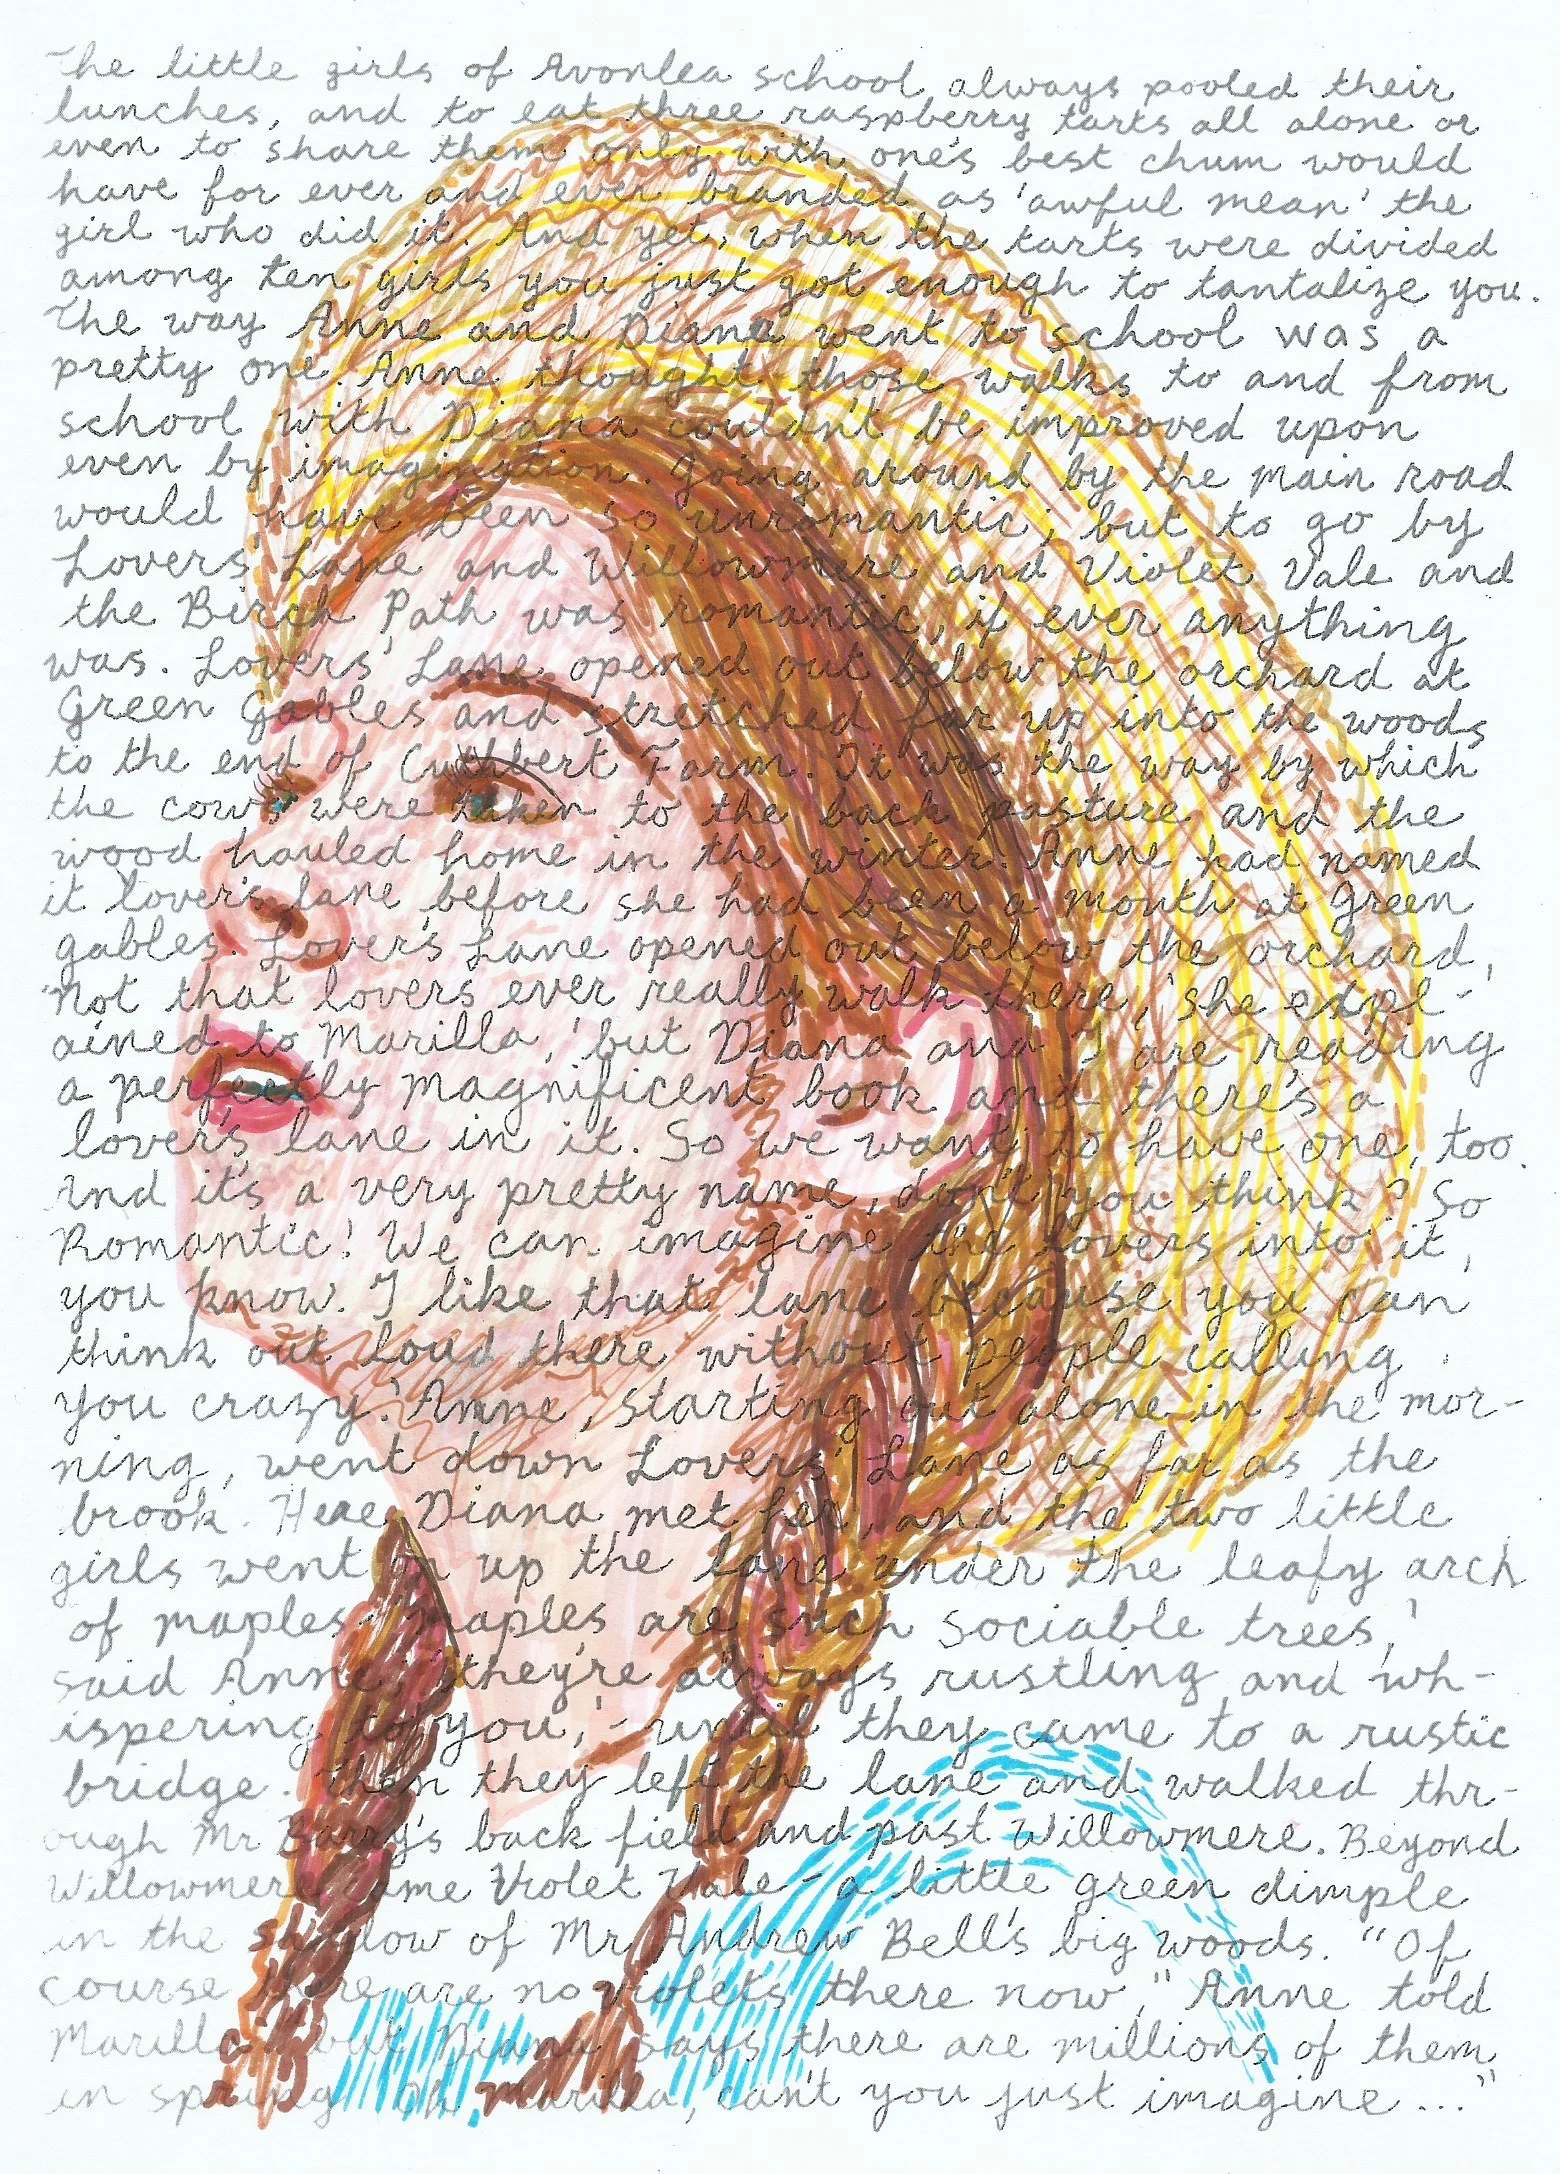 The little girls of Avonlea school always pooled their
lunches, and to eat three raspberry tarts all alone or
even to share them only with one's best chum would
have for ever and ever branded as 'awful mean' the
girl who did it. And yet, when the tarts were divided
among ten girls you just got enough to tantalize you.
The way Anne and Diana went to school was a
pretty one. Anne thought those walks to and from
school with Diana couldn't be improved upon
even by imagination. Going around by the main road
would have been so unromantic; but to go by
Lovers' Lane and Willowmere and Violet Vale and
the Birch Path was romantic, if ever anything
was. Lovers' Lane opened out below the orchard at
Green Gables and stretched far up into the woods
to the end of Cuthbert Farm. It was the way by which
the cows were taken to the back pasture and the
wood hauled home in the winter. Anne had named
it lover's lane before she had been a month at Green
gables. Lover's Lane opened out below the orchard,
'Not that lovers ever really walk there,' she expl-
ained to Marilla, 'but Diana and I are reading
a perfectly magnificent book and there's a
lover's lane in it. So we want to have one, too.
And it's a very pretty name, don't you think? So
Romantic! We can imagine the lovers into it,
you know. I like that lane because you can
think out loud there without people calling
you crazy.' Anne, starting out alone in the mor-
ning, went down Lovers' Lane as far as the
brook. Here Diana met her, and the two little
girls went on up the lane under the leafy arch
of maples. 'maples are such sociable trees,'
said Anne, 'they're always rustling and wh-
ispering to you,' - until they came to a rustic
bridge. Then they left the lane and walked thr-
ough Mr Barry's back field and past Willowmere. Beyond
Willowmere came Violet Vale - a little green dimple
in the shadow of Mr Andrew Bell's big woods. "Of
course there are no violets there now," Anne told
Marilla, "but Diana says there are millions of them
in spring. Oh, Marilla, can't you just imagine..."